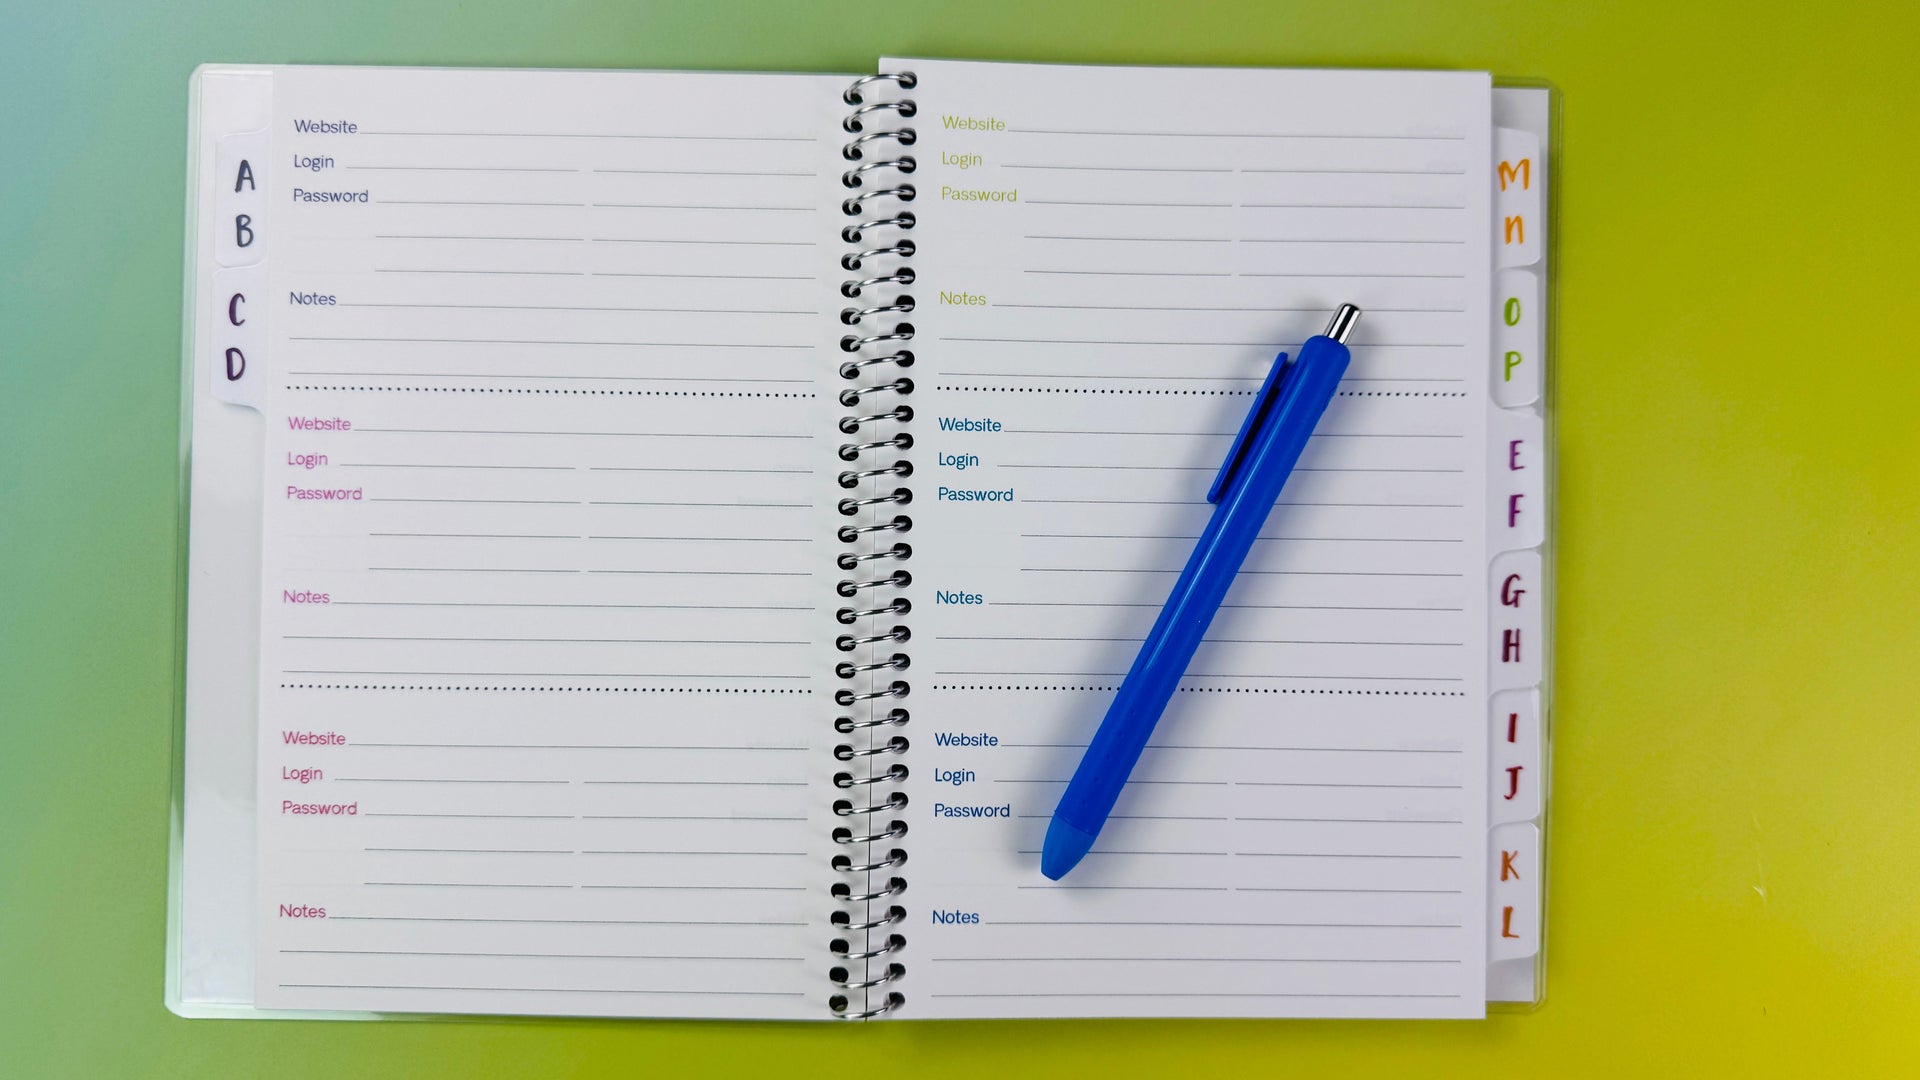 A
B
C
D
Website
Login
Password
Notes
Website
Login
Password
Notes
Website
Login
Password
Notes
Website
Login
Password
Notes
Website
Login
Password
Notes
Website
Login
Password
Notes
M
n
O
P
E
F
G
H
I
J
K
L